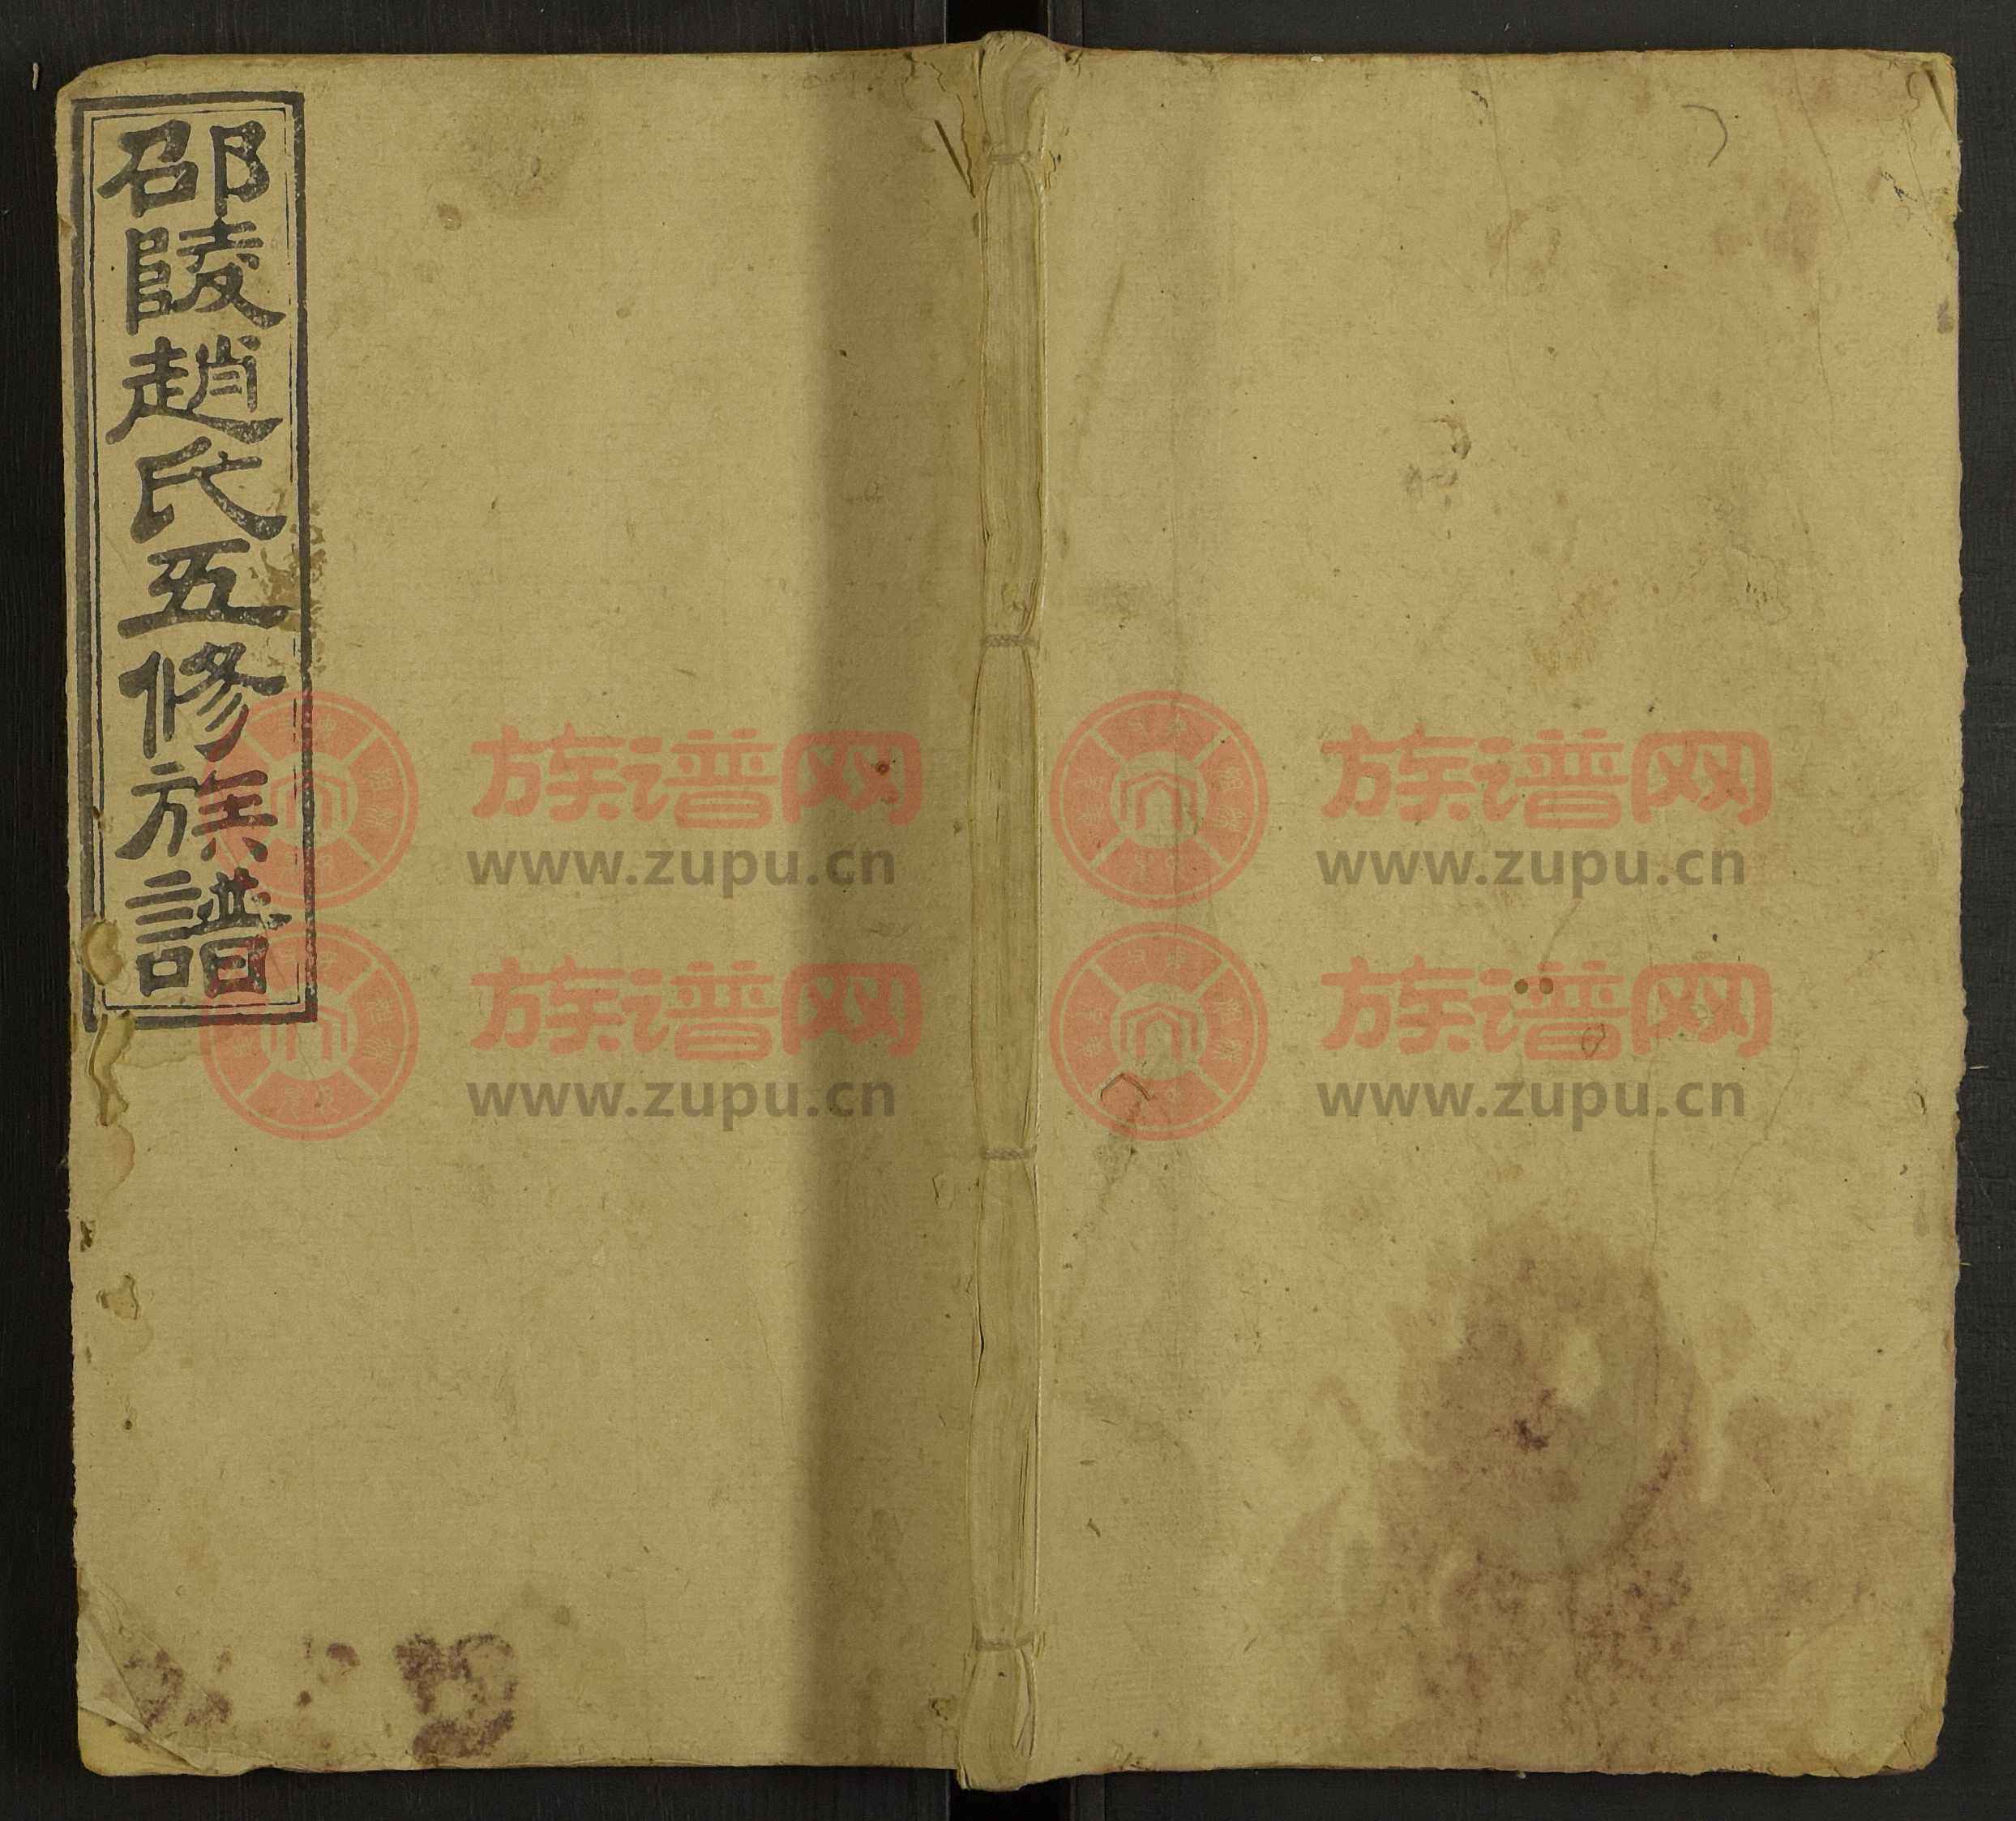 邵陵趙氏五修族譜
族谱网
www.zupu.cn
族谱网
www.zupu.cn
族谱网
www.zupu.cn
族谱网
www.zupu.cn